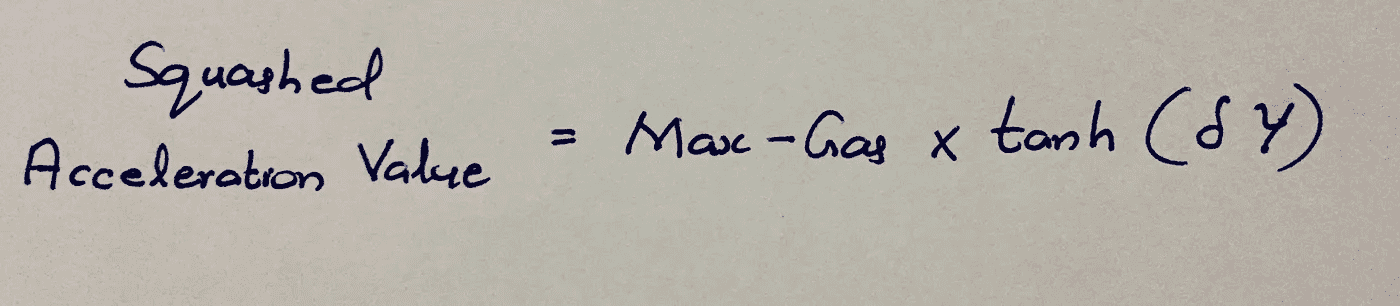 Squashed
Acceleration Value = Max-Gas x tanh (δ Y)